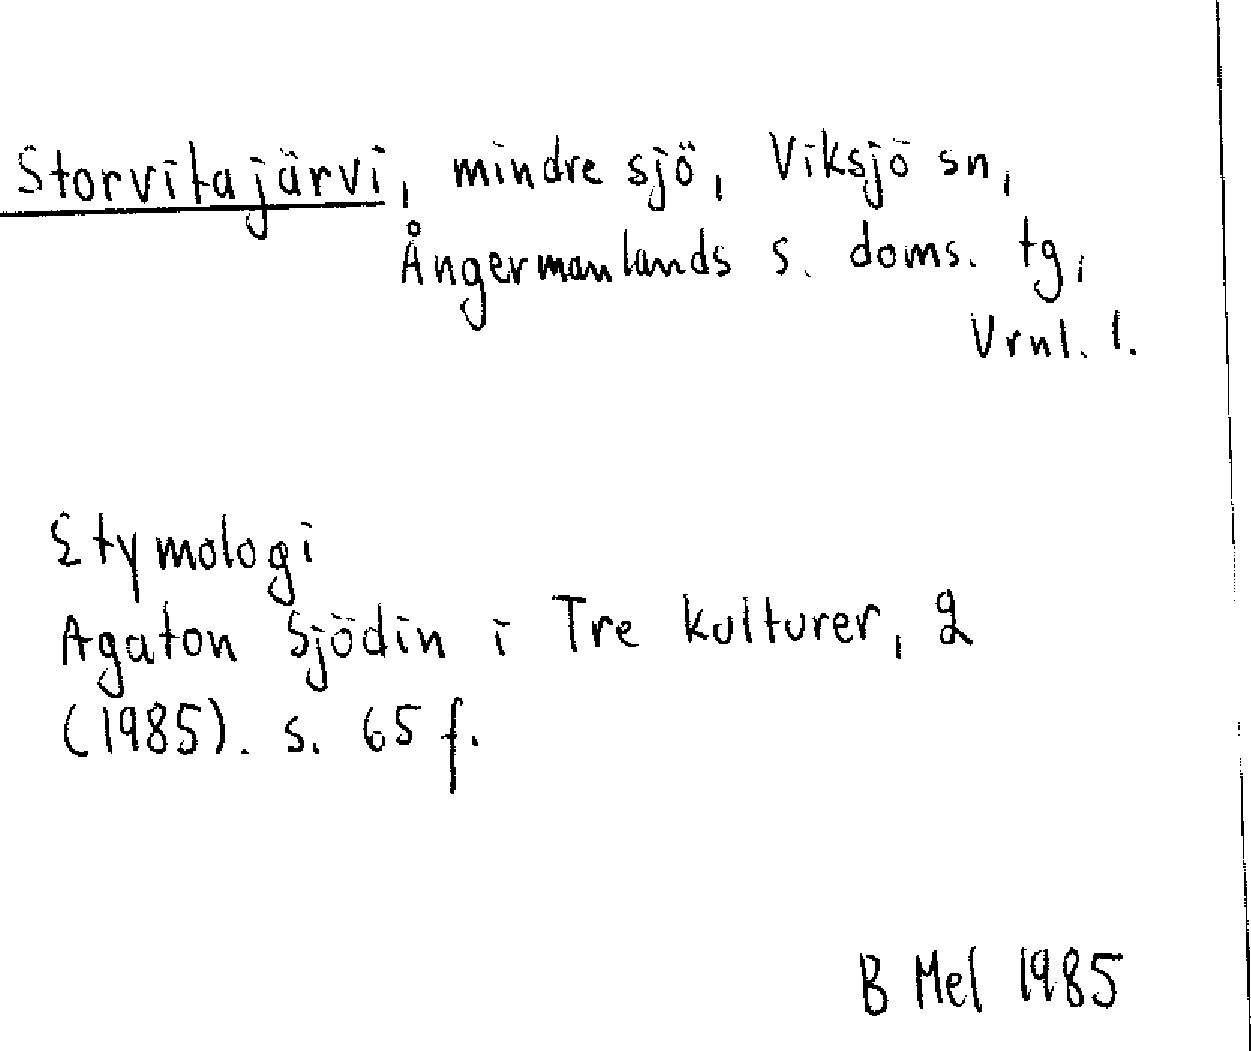 Storvitajärvi, mindre sjö, Viksjö sn,
Ångermanlands s. doms. tg,
Vrnl. l.
Etymologi
Agaton Sjödin i Tre kulturer, 2
(1985). s. 65 f.
B Mel 1985